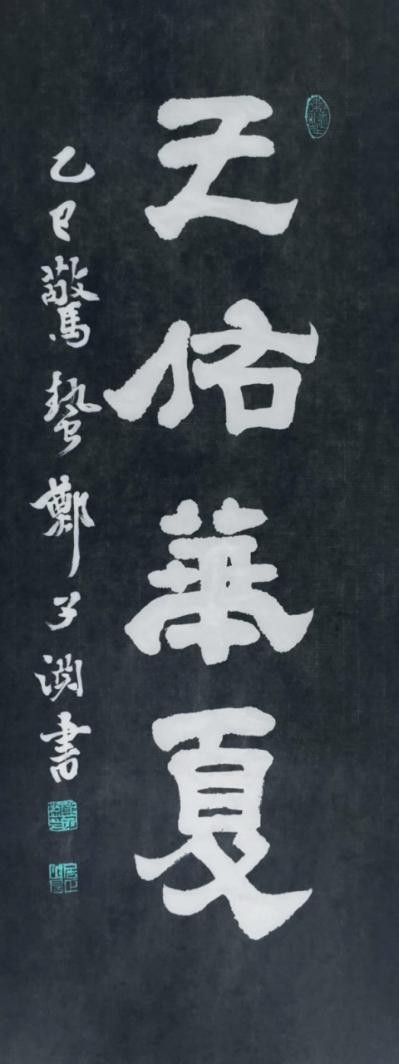 天佑華夏
乙巳驚蟄鄭子淵書